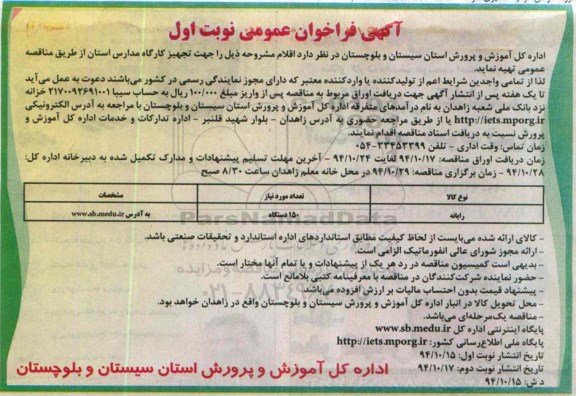 آگهی فراخوان عمومی نوبت اول
اداره کل آموزش و پرورش استان سیستان و بلوچستان در نظر دارد اقلام مشروحه ذیل را جهت تجهیز کارگاه مدارس استان از طریق مناقصه
عمومی تهیه نماید.
لذا از تمامی واجدین شرایط اعم از تولیدکننده یا واردکننده معتبر که دارای مجوز نمایندگی رسمی در کشور می‌باشند دعوت به عمل می‌آید
تا یک هفته پس از انتشار آگهی جهت دریافت اوراق مربوط به مناقصه پس از واریز مبلغ ۱۰۰/۰۰۰ ریال به حساب سیبا ۲۱۷۰۰۹۲۶۹۱۰۰۱ خزانه
نزد بانک ملی شعبه زاهدان به نام درآمدهای متفرقه اداره کل آموزش و پرورش استان سیستان و بلوچستان با مراجعه به آدرس الکترونیکی
http://iets.mporg.ir یا از طریق مراجعه حضوری به آدرس زاهدان - بلوار شهید قلنبر - اداره تدارکات و خدمات اداره کل آموزش و
پرورش نسبت به دریافت اسناد مناقصه اقدام نمایند.
زمان تماس: وقت اداری - تلفن ۳۳۴۵۳۳۹۹-۰۵۴
زمان دریافت اوراق مناقصه: ۹۴/۱۰/۱۷ لغایت ۹۴/۱۰/۲۴ - آخرین مهلت تسلیم پیشنهادات و مدارک تکمیل شده به دبیرخانه اداره کل:
۹۴/۱۰/۲۸ - زمان برگزاری مناقصه: ۹۴/۱۰/۲۹ در محل خانه معلم زاهدان ساعت ۸/۳۰ صبح
نوع کالا تعداد مورد نیاز مشخصات
رایانه ۱۵۰ دستگاه به آدرس www.sb.medu.ir
ParsNamadData
- کالای ارائه شده می‌بایست از لحاظ کیفیت مطابق استانداردهای اداره استاندارد و تحقیقات صنعتی باشد.
- ارائه مجوز شورای عالی انفورماتیک الزامی است.
- بدیهی است کمیسیون مناقصه در رد هر یک از پیشنهادات و یا تمام آنها مختار است.
- حضور نماینده شرکت‌کنندگان در مناقصه با معرفینامه کتبی بلامانع است.
- پیشنهاد قیمت بدون احتساب مالیات بر ارزش افزوده می‌باشد.
- محل تحویل کالا در انبار اداره کل آموزش و پرورش سیستان و بلوچستان واقع در زاهدان خواهد بود.
- مناقصه یک‌مرحله‌ای می‌باشد.
پایگاه اینترنتی اداره کل www.sb.medu.ir
پایگاه ملی اطلاع‌رسانی کشور: http://iets.mporg.ir
تاریخ انتشار نوبت اول: ۹۴/۱۰/۱۵
تاریخ انتشار نوبت دوم: ۹۴/۱۰/۱۷
د ش: ۹۴/۱۰/۱۵
اداره کل آموزش و پرورش استان سیستان و بلوچستان